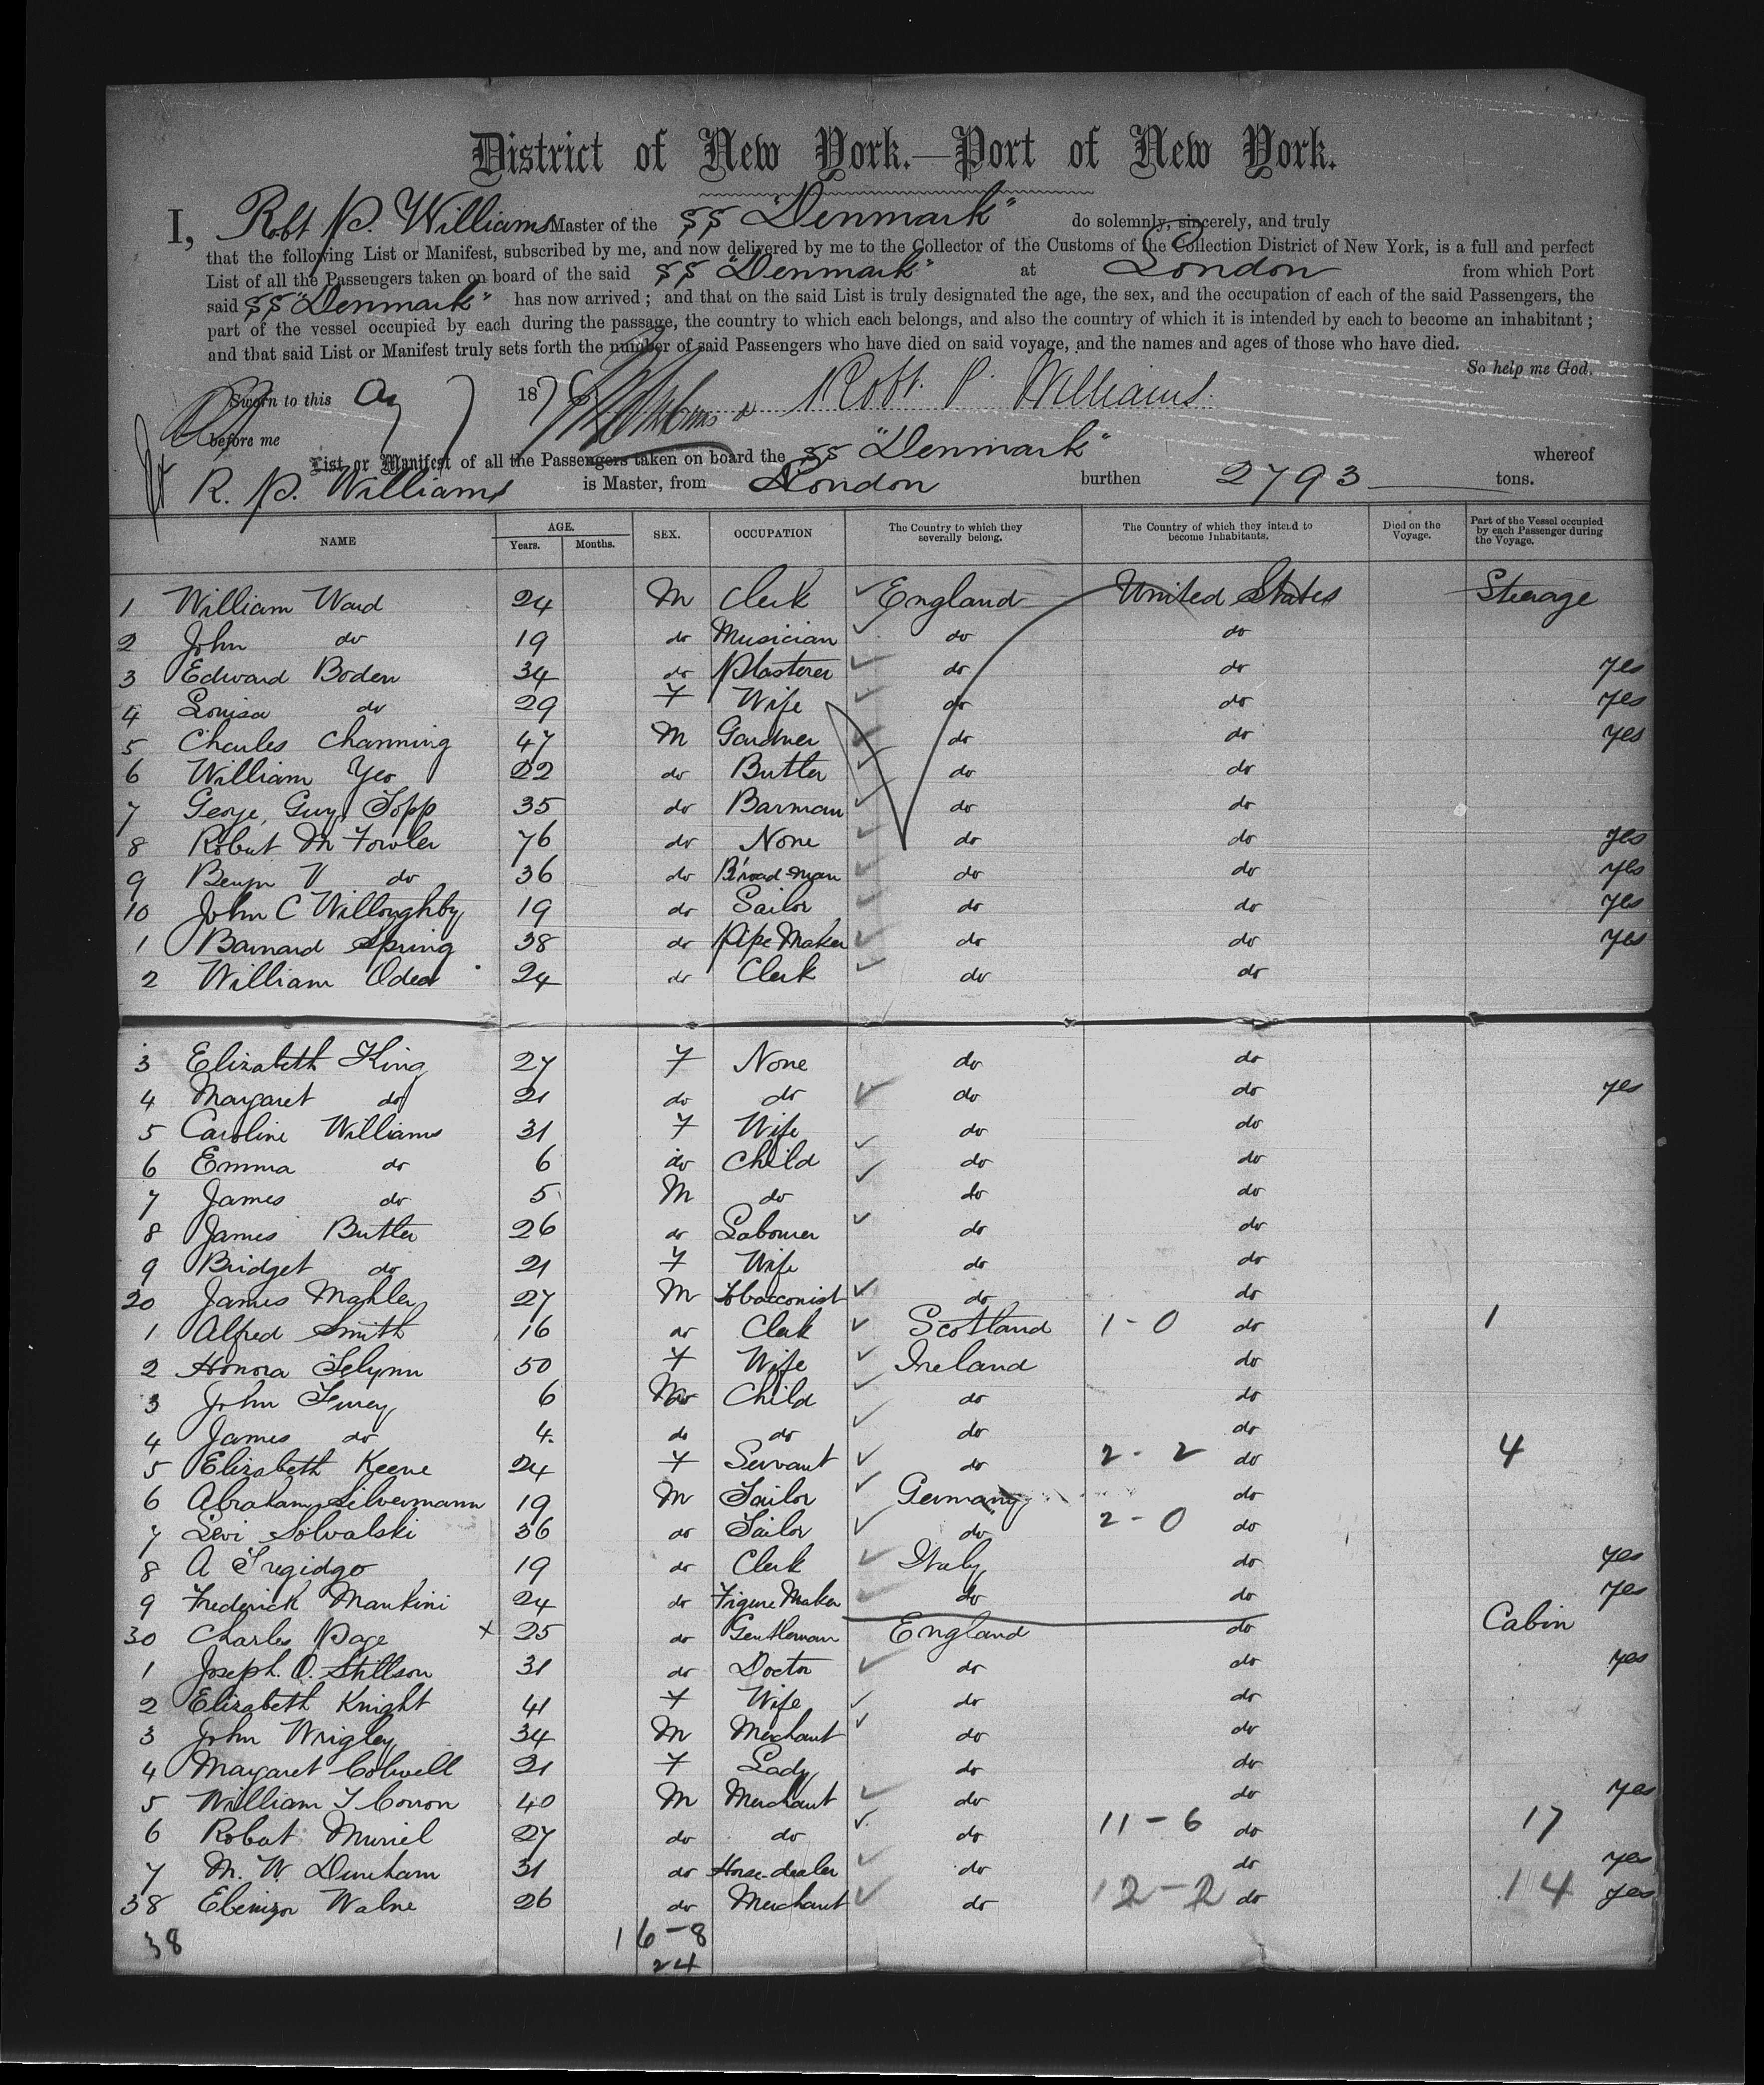 District of New York.—Port of New York.
I, Robt P. Williams Master of the SS "Denmark" do solemnly, sincerely, and truly
that the following List or Manifest, subscribed by me, and now delivered by me to the Collector of the Customs of the Collection District of New York, is a full and perfect
List of all the Passengers taken on board of the said SS "Denmark" at London from which Port
said SS "Denmark" has now arrived; and that on the said List is truly designated the age, the sex, and the occupation of each of the said Passengers, the
part of the vessel occupied by each during the passage, the country to which each belongs, and also the country of which it is intended by each to become an inhabitant;
and that said List or Manifest truly sets forth the number of said Passengers who have died on said voyage, and the names and ages of those who have died.
So help me God.
Sworn to this Aug 7 1876 Robt. P. Williams.
before me
List or Manifest of all the Passengers taken on board the SS "Denmark" whereof
R. P. Williams is Master, from London burthen 2793 tons.
NAME AGE. Years. Months. SEX. OCCUPATION The Country to which they severally belong. The Country of which they intend to become Inhabitants. Died on the Voyage. Part of the Vessel occupied by each Passenger during the Voyage.
1 William Ward 24 M Clerk England United States Steerage
2 John do 19 do Musician do do
3 Edward Boden 34 do Plasterer do do yes
4 Louisa do 29 F Wife do do yes
5 Charles Channing 47 M Gardner do do yes
6 William Yeo 22 do Butler do do
7 George Guy Topp 35 do Barman do do
8 Robert M Fowler 76 do None do do yes
9 Benjn V do 36 do do do yes
10 John C Willoughby 19 do Sailor do do yes
1 Barnard Spring 38 do Pipe Maker do do yes
2 William Odea 24 do Clerk do do
3 Elizabeth King 27 F None do do
4 Margaret do 21 do do do do yes
5 Caroline Williams 31 F Wife do do
6 Emma do 6 do Child do do
7 James do 5 M do do do
8 James Butler 26 do Labourer do do
9 Bridget do 21 F Wife do do
20 James Mahler 27 M Tobacconist do do
1 Alfred Smith 16 do Clerk Scotland 1-0 do 1
2 Honora 50 F Wife Ireland do
3 John 6 M Child do do
4 James do 4 do do do do
5 Elizabeth Keene 24 F Servant do 2-2 do 4
6 Abraham Silvermann 19 M Tailor Germany do
7 Levi Solvalski 36 do Tailor do 2-0 do
8 A Tregidgo 19 do Clerk Italy do yes
9 Frederick Mankini 24 do Figure Maker do do yes
30 Charles Page x 25 do Gentleman England do Cabin
1 Joseph. O. Stillson 31 do Doctor do do yes
2 Elizabeth Knight 41 F Wife do do
3 John Wrigley 34 M Merchant do do
4 Margaret Colwell 21 F Lady do do
5 William T Conron 40 M Merchant do do yes
6 Robert Muriel 27 do do do 11-6 do 17
7 M. W. Dunham 31 do Horse-dealer do do yes
38 Ebenizor Walne 26 do Merchant do 12-2 do 14 yes
38 16-8
24